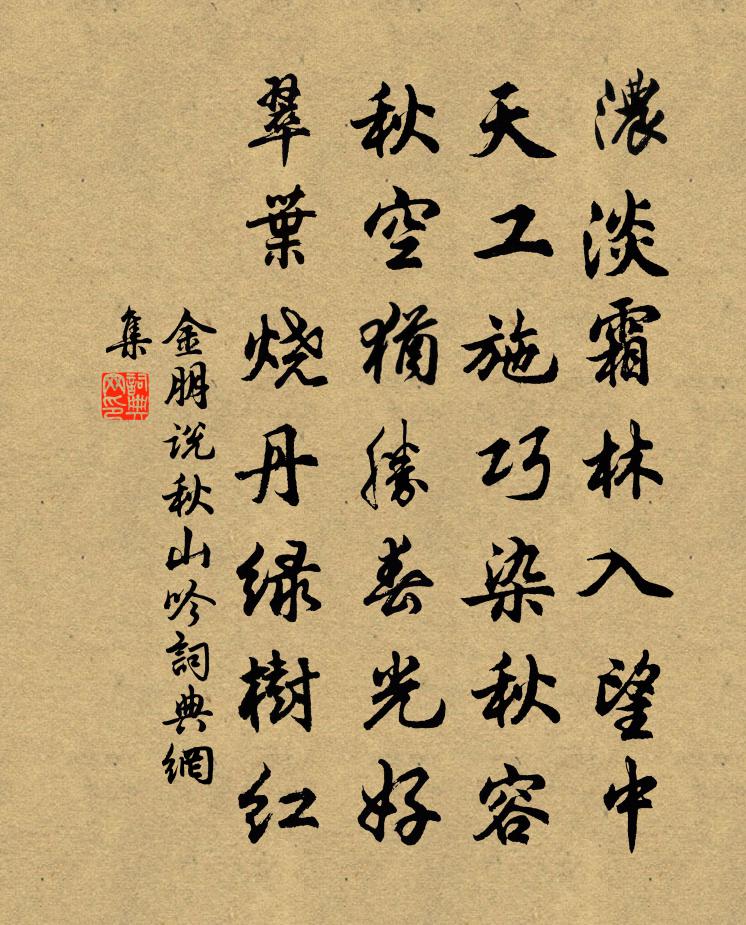 濃淡霜林入望中
天工施巧染秋容
秋空猶勝春光好
翠葉烧丹绿樹红
金朋说秋山吟詞典網
集
詞典網印